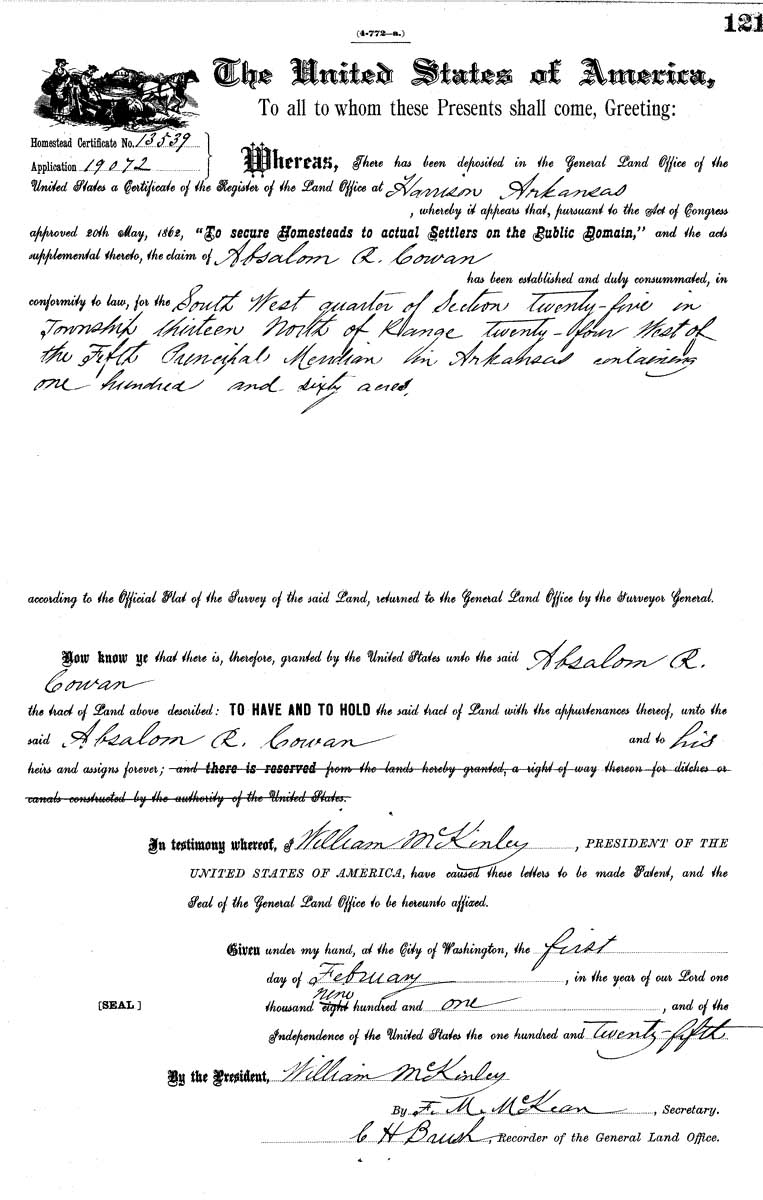 (4-772-a.)
121
The United States of America,
To all to whom these Presents shall come, Greeting:
Homestead Certificate No. 13539
Application 19072
Whereas, There has been deposited in the General Land Office of the
United States a Certificate of the Register of the Land Office at Harrison Arkansas
, whereby it appears that, pursuant to the Act of Congress
approved 20th May, 1862, "To secure Homesteads to actual Settlers on the Public Domain," and the acts
supplemental thereto, the claim of Absalom R. Cowan
has been established and duly consummated, in
conformity to law, for the South West quarter of Section twenty-five in
Township thirteen North of Range twenty-four West of
the Fifth Principal Meridian in Arkansas containing
one hundred and sixty acres,
according to the Official Plat of the Survey of the said Land, returned to the General Land Office by the Surveyor General.
Now know ye that there is, therefore, granted by the United States unto the said Absalom R.
Cowan
the tract of Land above described: TO HAVE AND TO HOLD the said tract of Land with the appurtenances thereof, unto the
said Absalom R. Cowan and to his
heirs and assigns forever; and there is reserved from the lands hereby granted, a right of way thereon for ditches or
canals constructed by the authority of the United States.
In testimony whereof, I William McKinley, PRESIDENT OF THE
UNITED STATES OF AMERICA, have caused these letters to be made Patent, and the
Seal of the General Land Office to be hereunto affixed.
Given under my hand, at the City of Washington, the first
day of February, in the year of our Lord one
nine
[SEAL] thousand eight hundred and one, and of the
Independence of the United States the one hundred and twenty-fifth
By the President, William McKinley
By F. M. McKean, Secretary.
C H Brush, Recorder of the General Land Office.